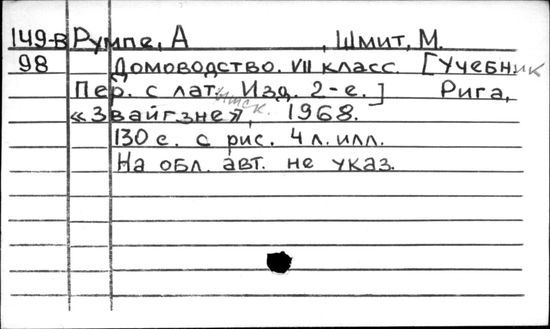 149-В Румпе, А , Шмит, М.
98 Домоводство. VII класс. [Учебник
Пер. с латышск. Изд. 2-е.] Рига,
«Звайгзне», 1968.
130 с. с рис. 4 л. илл.
На обл. авт. не указ.